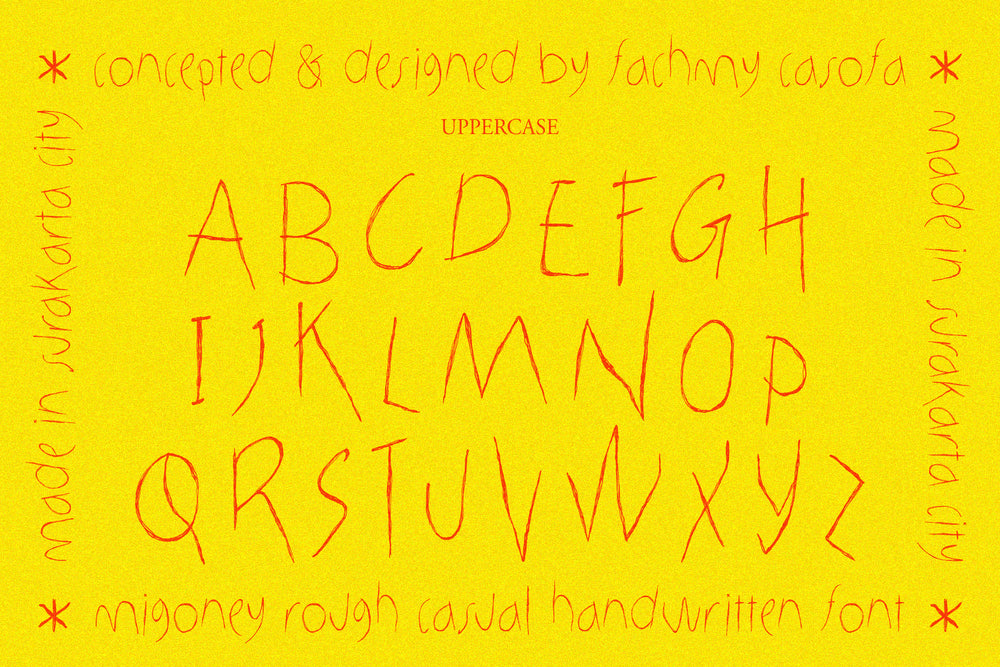 * concepted & designed by fachmy casofa *
UPPERCASE
made in surakarta city
made in surakarta city
ABCDEFGH
IJKLMNOP
QRSTUVWXYZ
* migoney rough casual handwritten font *